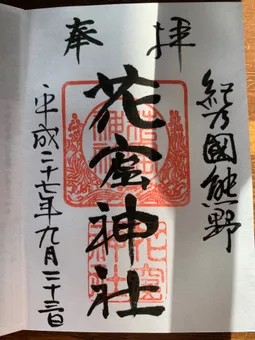 奉拝
紀乃國熊野
花窟神社
平成二十七年九月二十三日
花窟神社